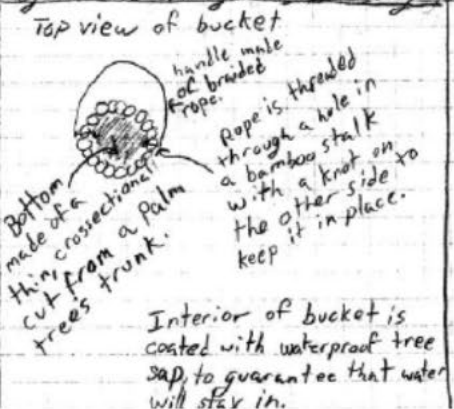 Top view of bucket
handle made
of braided
rope.
Rope is threaded
through a hole in
a bamboo stalk
with a knot on
the other side to
keep it in place.
Bottom
made of a
thin, crossectional
cut from a palm
trees trunk.
Interior of bucket is
coated with waterproof tree
sap, to guarantee that water
will stay in.